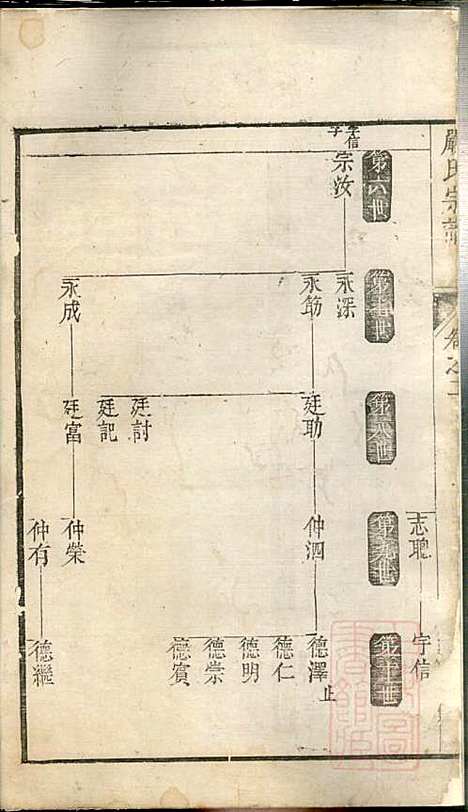 嚴氏宗譜
卷之二
志聰
宇信
第六世
第七世
第八世
第九世
第十世
宇信
子
宗汝
永深
永節
永成
廷助
廷討
廷記
廷富
仲泗
仲榮
仲有
德澤 止
德仁
德明
德崇
德賓
德繼